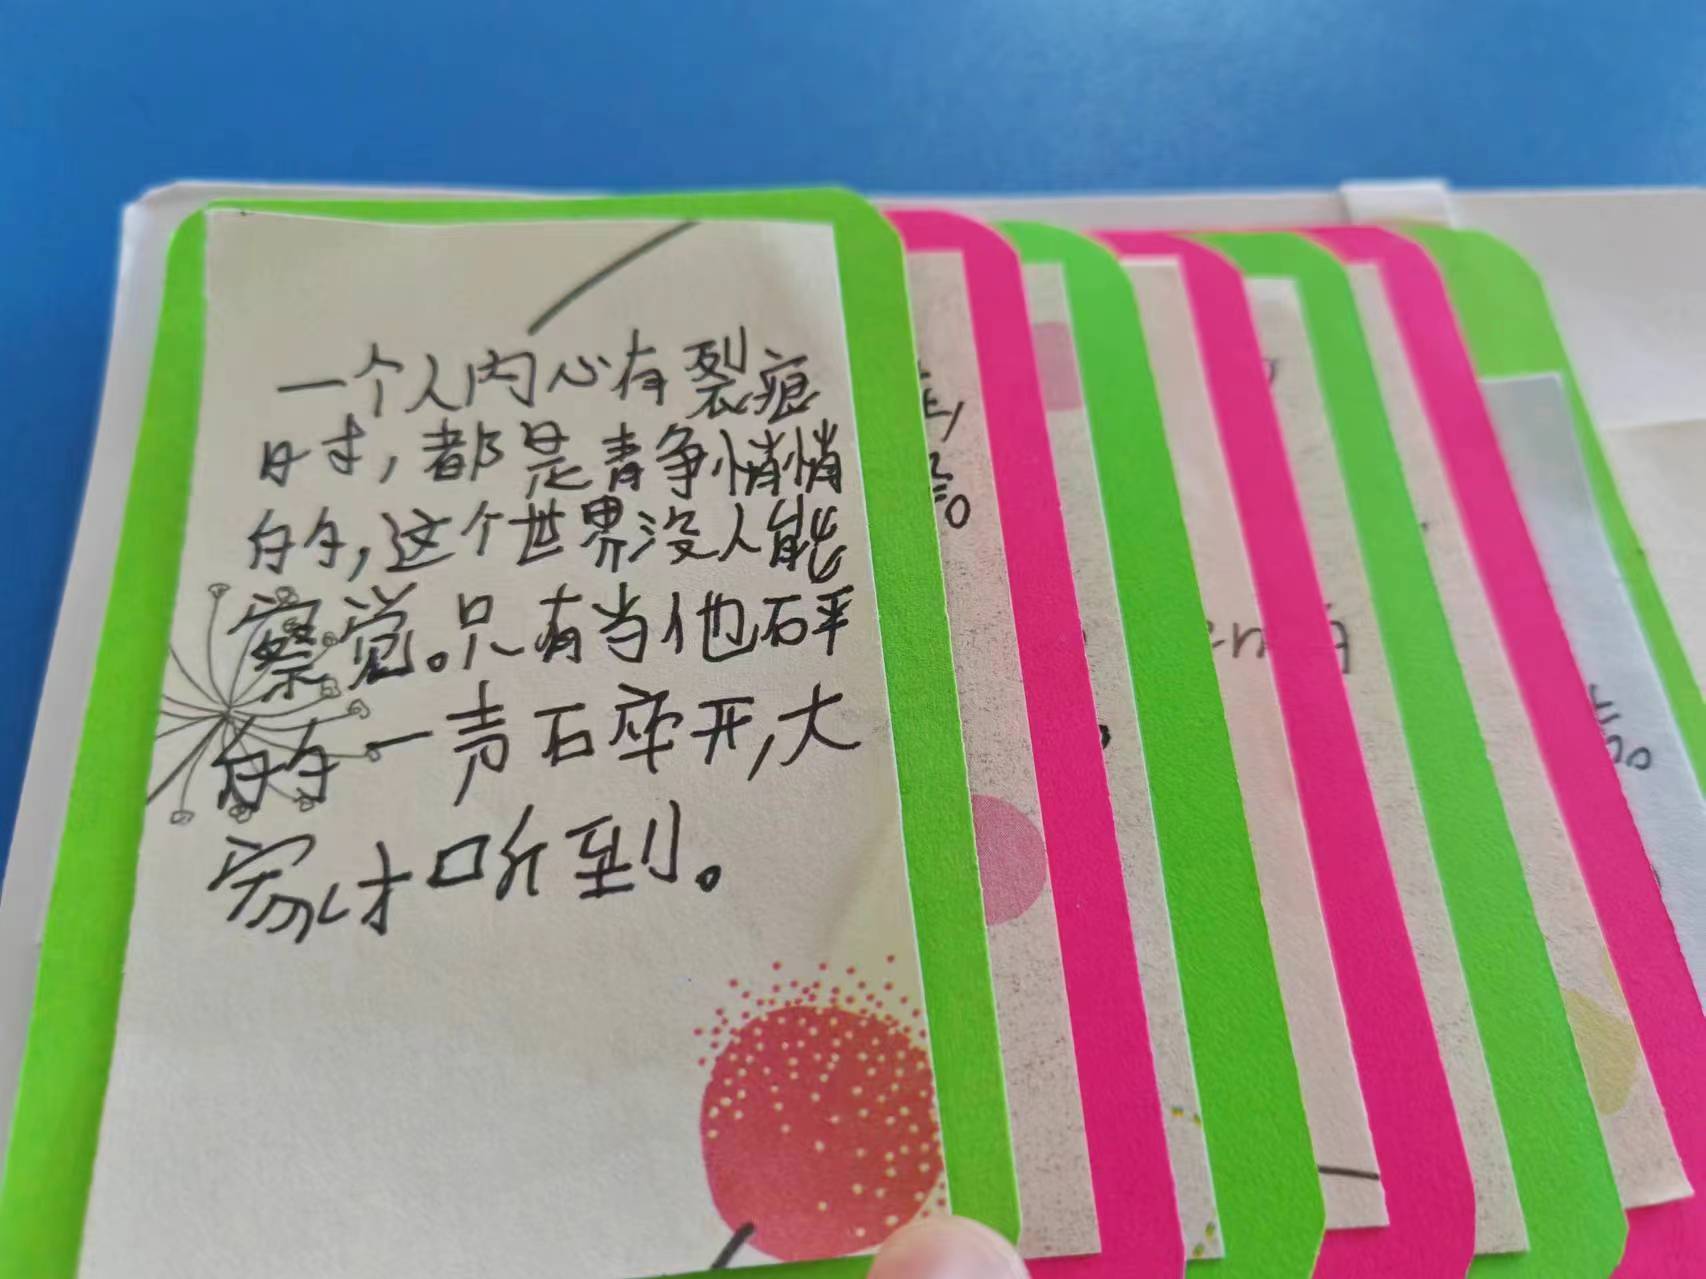 一个人内心有裂痕
时，都是青争悄悄
的，这个世界没人能
察觉。只有当他砰
的一声碎开，大
家才听到。